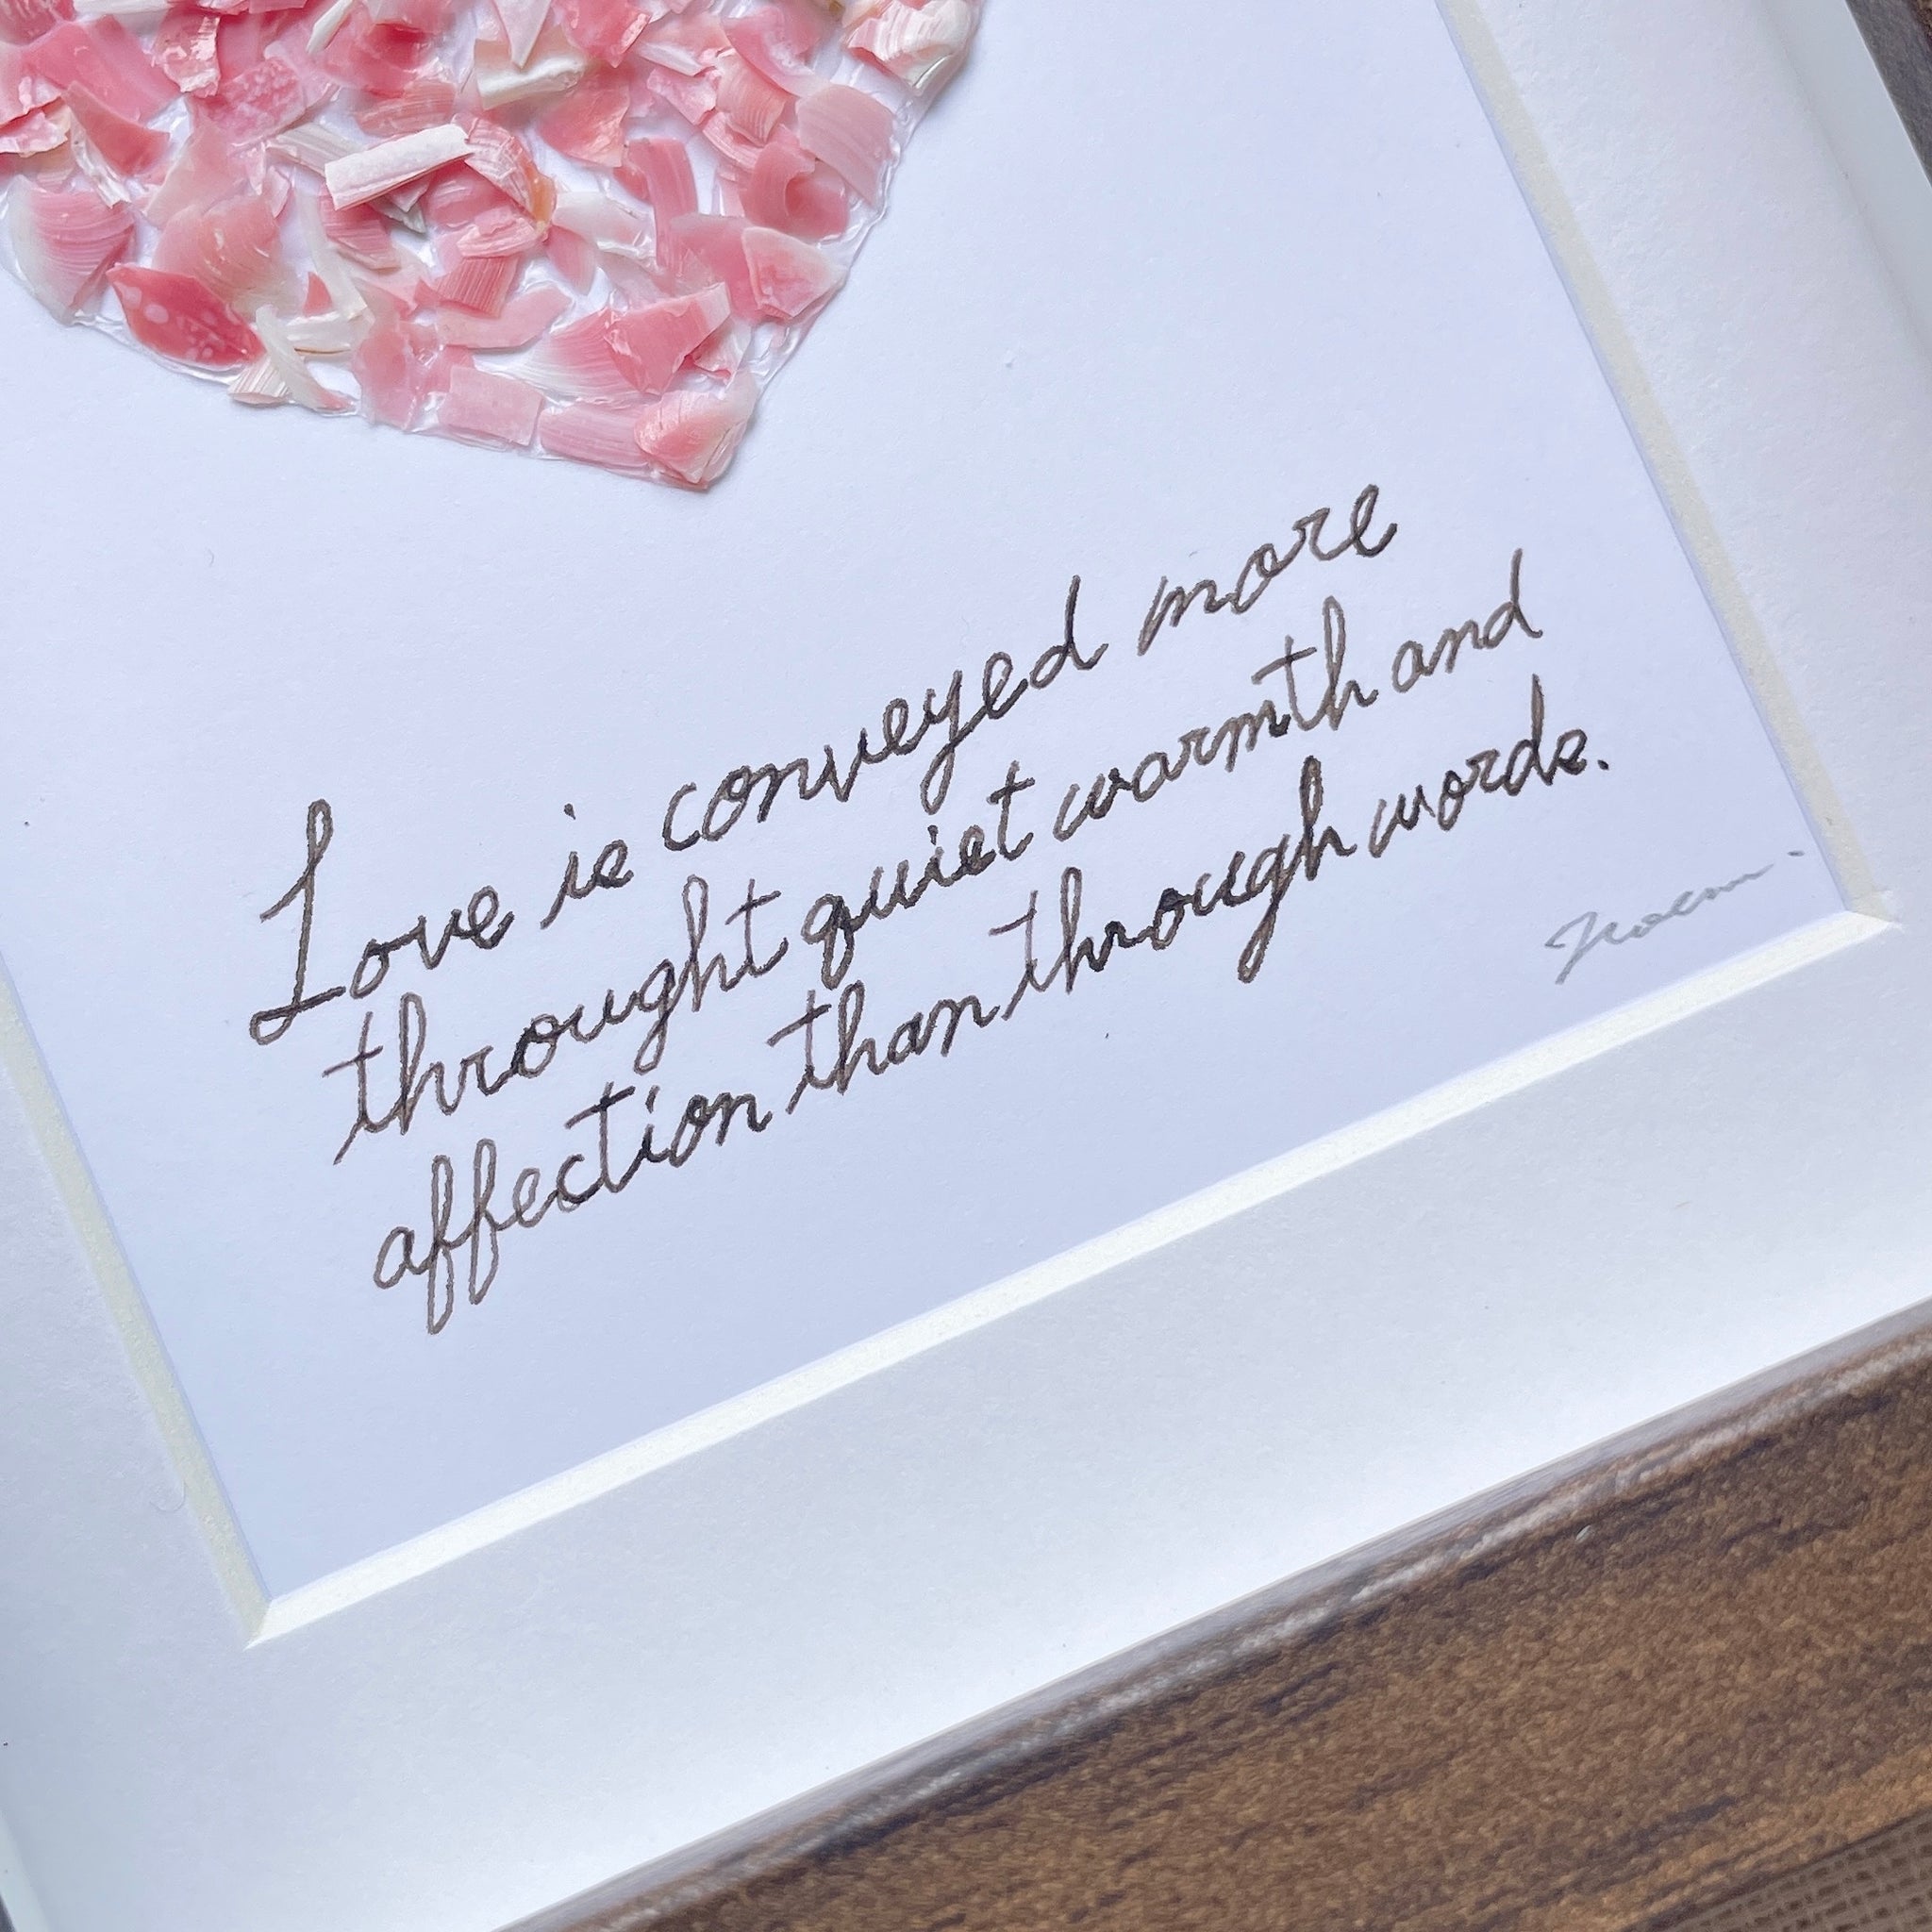 Love is conveyed more
throught quiet warmth and
affection than through words.